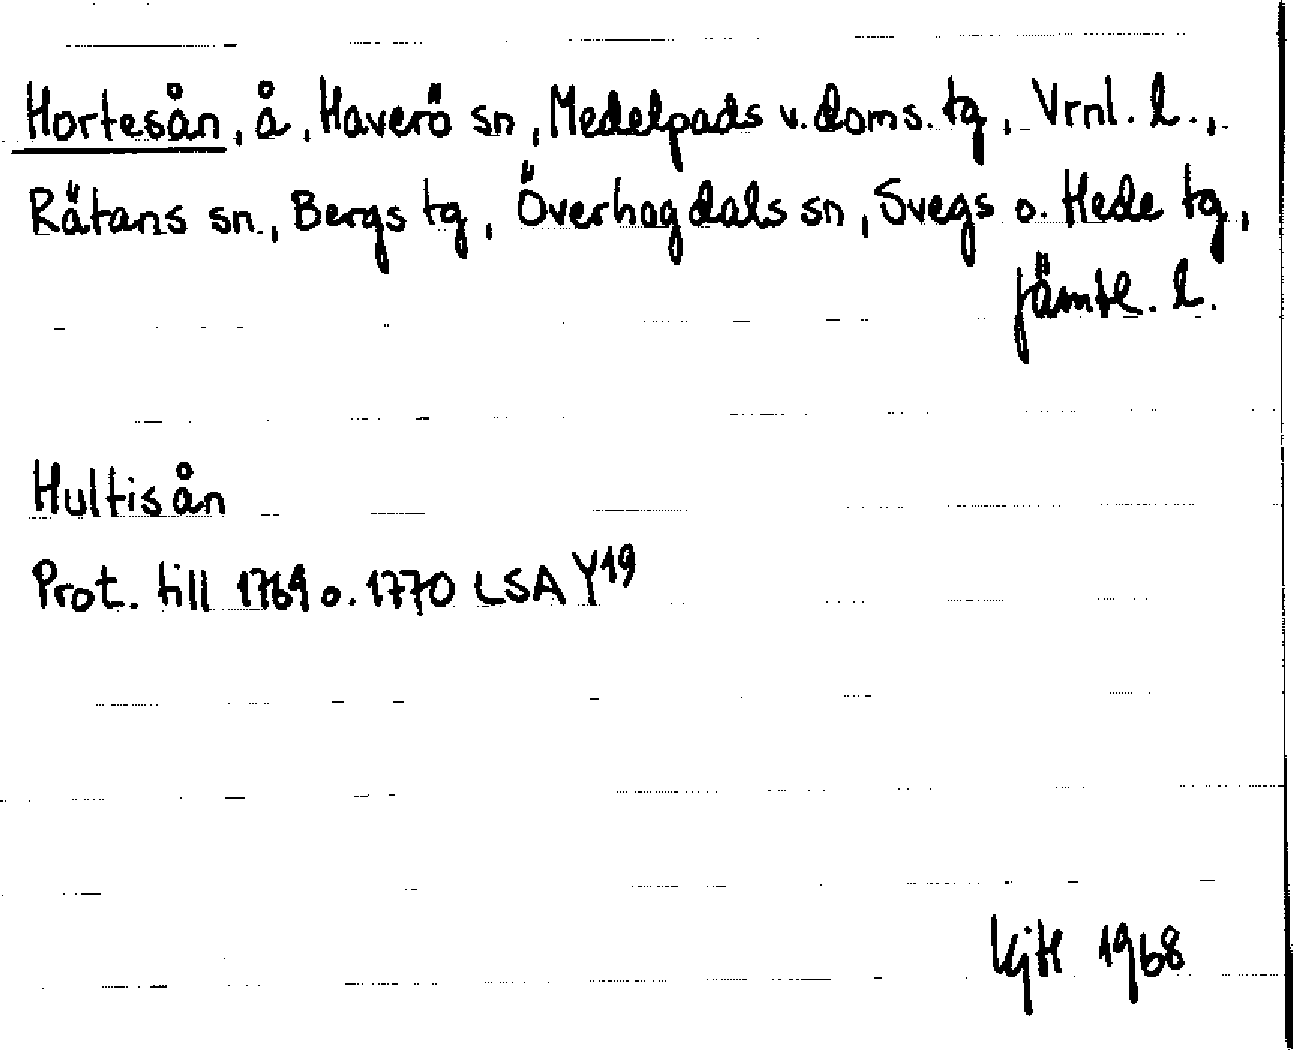 Hortesån, å, Haverö sn, Medelpads v. doms. tg, Vrnl. l.,
Rätans sn., Bergs tg, Överhogdals sn, Svegs o. Hede tg,
Jämtl. l.
Hultisån
Prot. till 1769 o. 1770 LSA Y19
1968